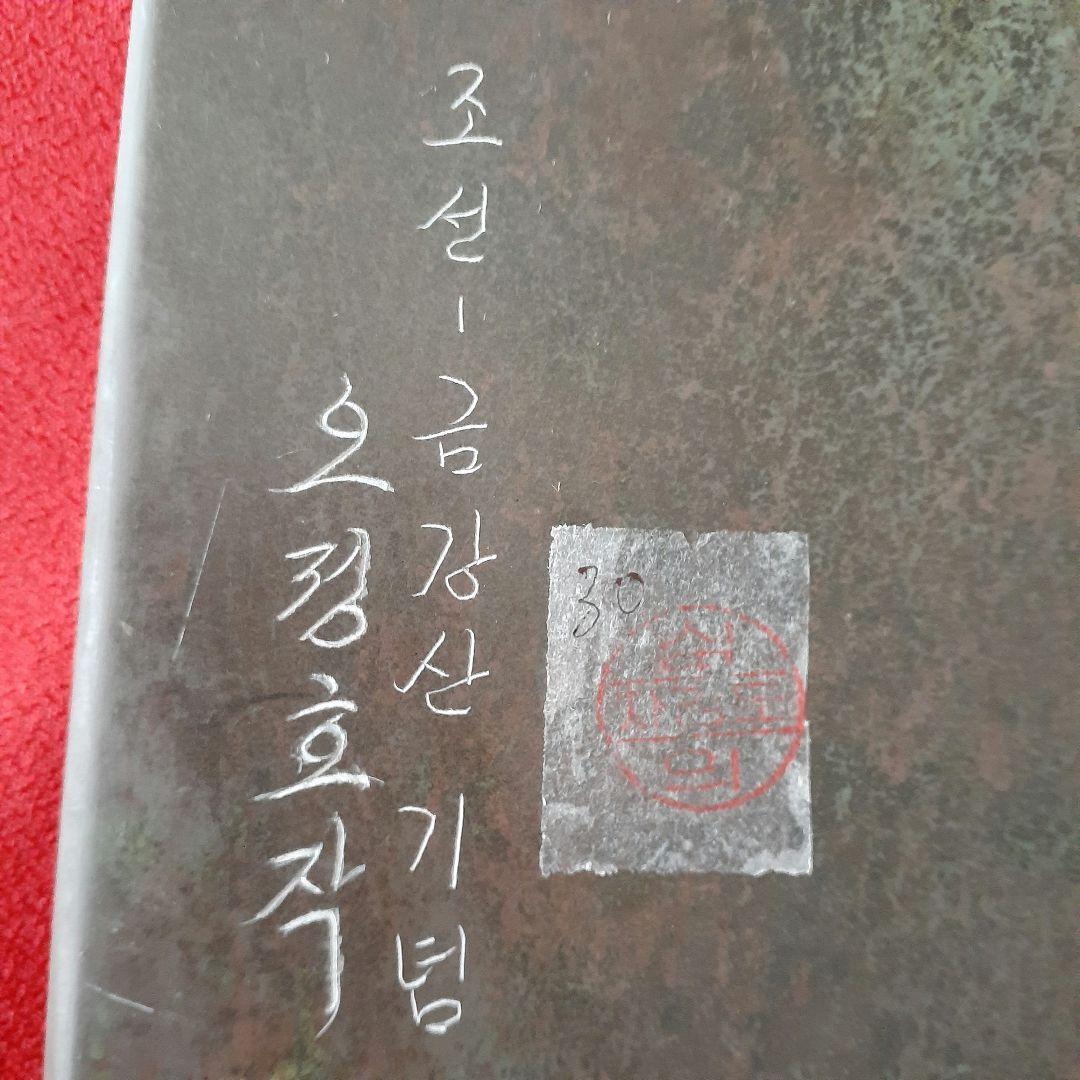 조선-금강산 기념
오경호작
30